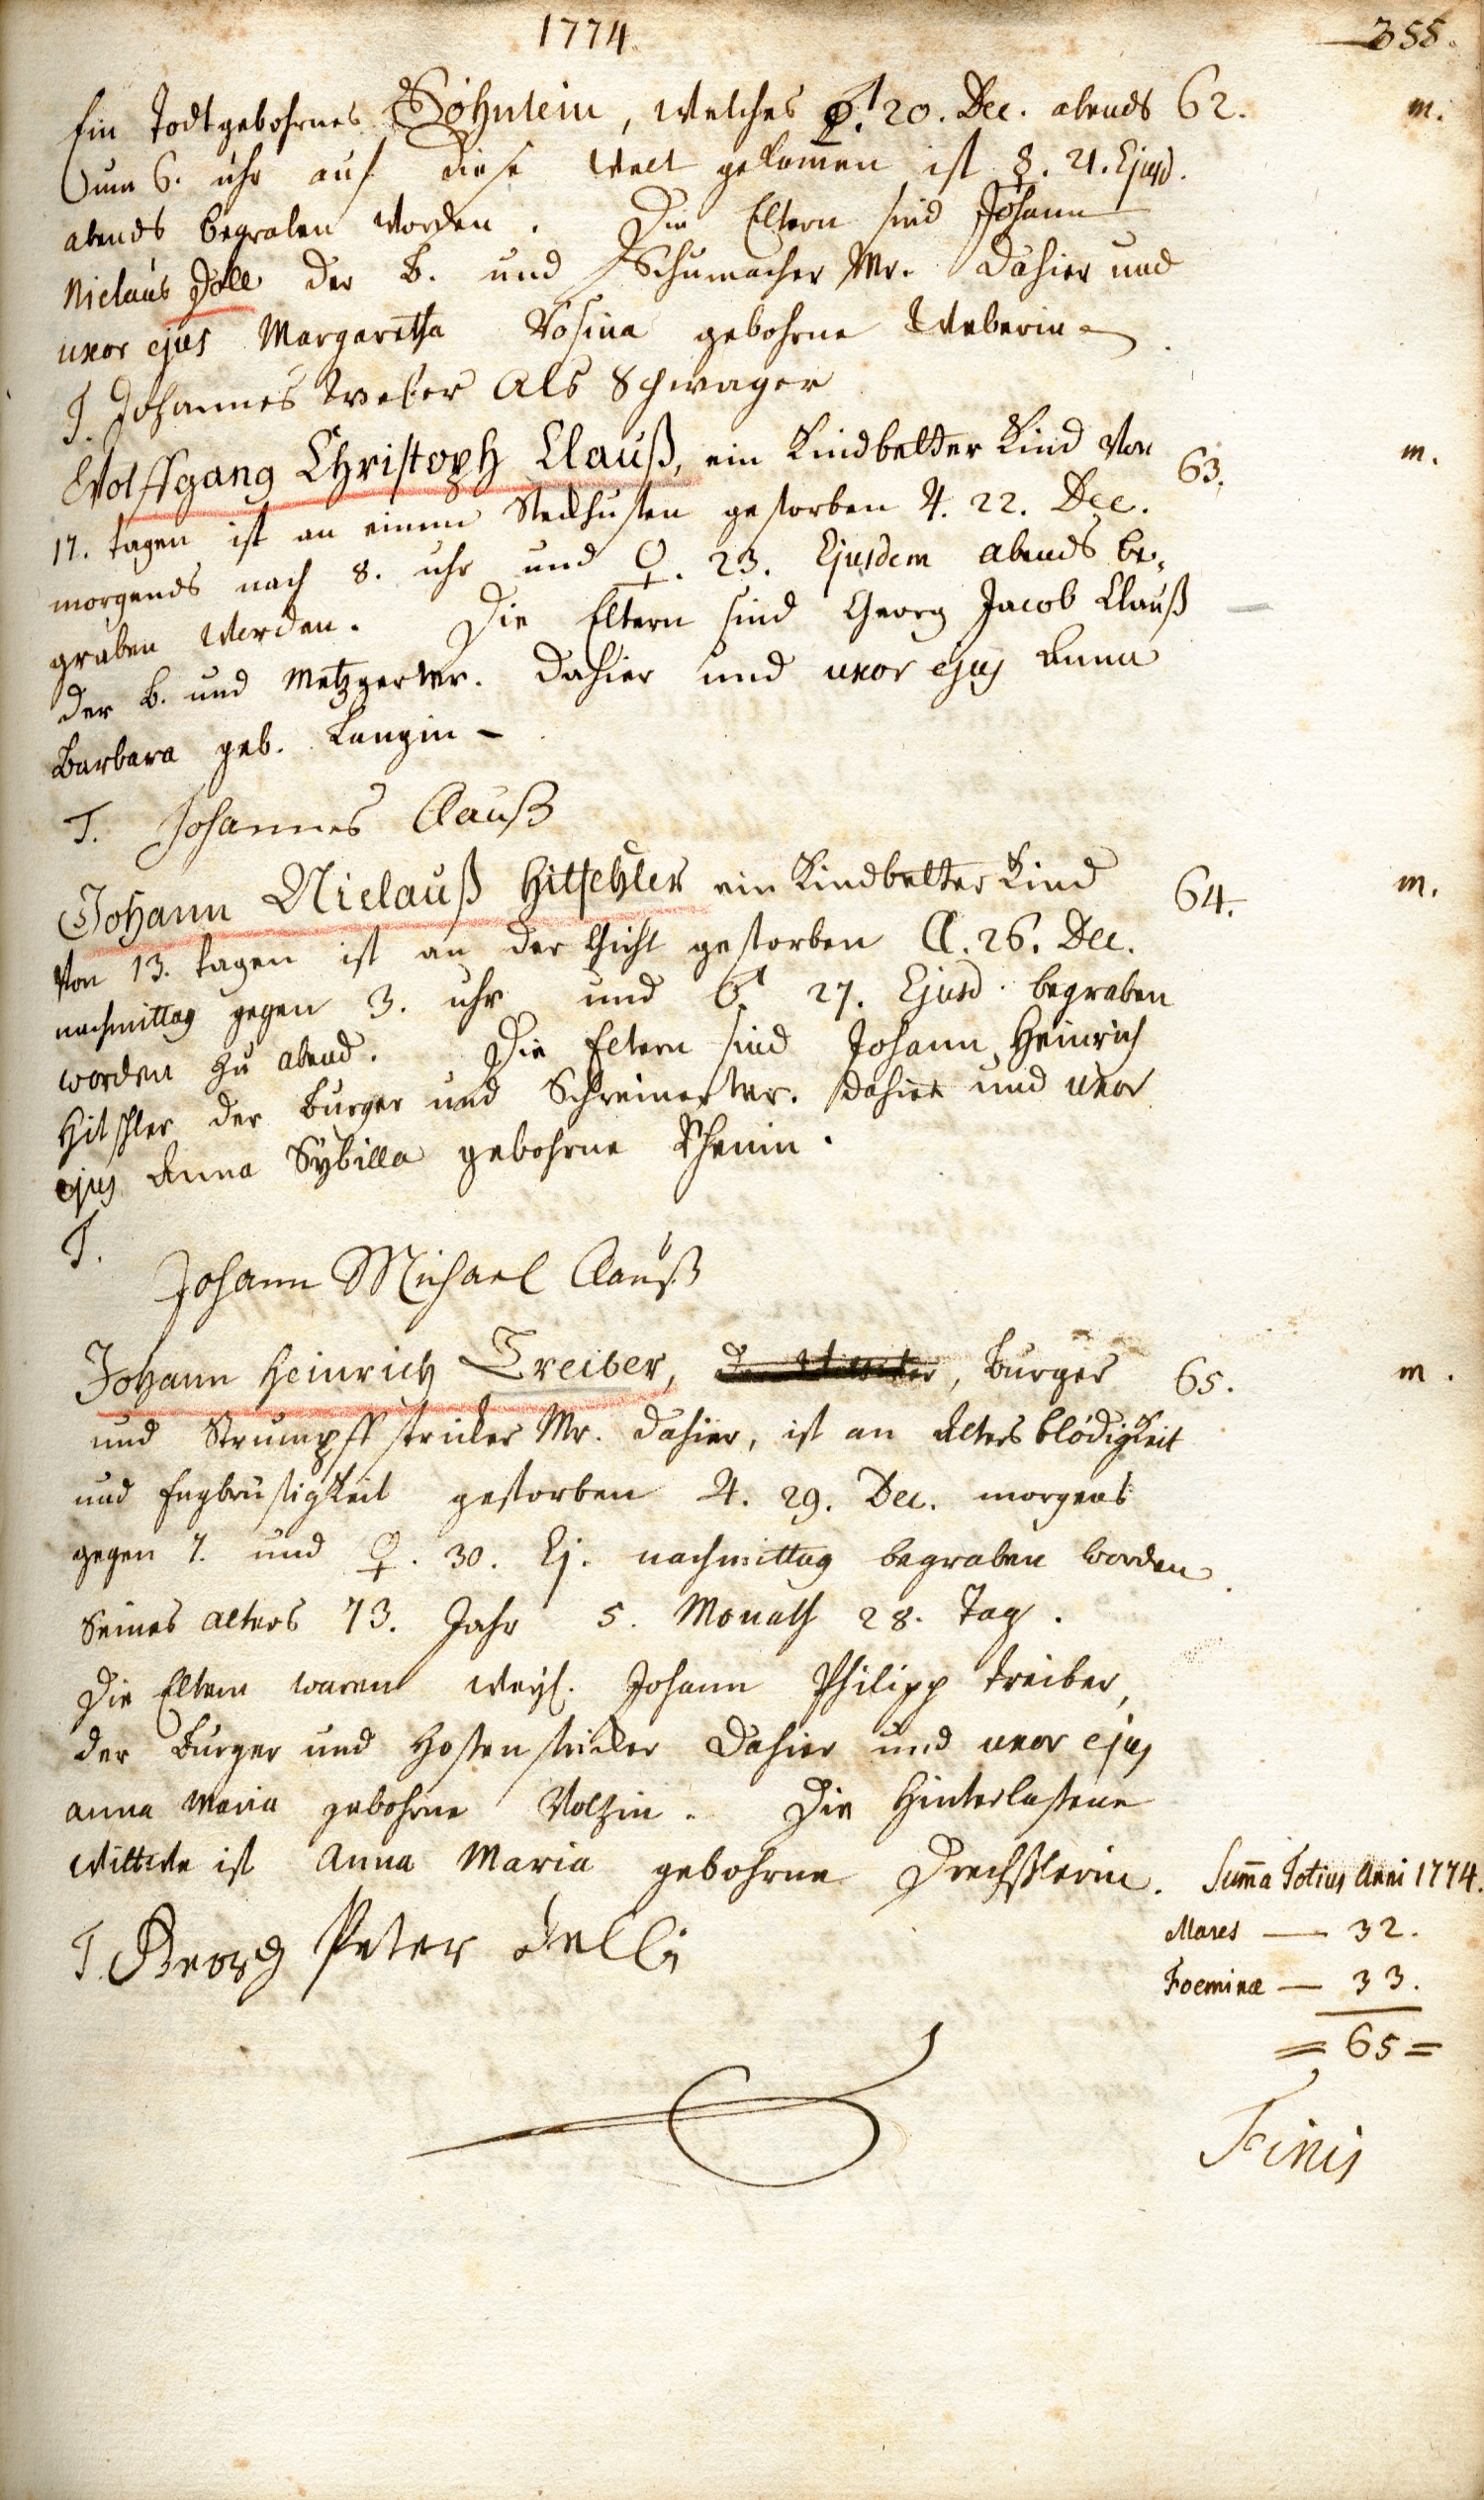 1774. 355.
Ein Todtgebohrnes Söhnlein, welches ♂. 20. Dec. abends 62. m.
um 6. uhr auf diese Welt gekom̄en ist ☿. 21. Ejusd.
abends begraben worden. Die Eltern sind Johann
Niclaus Doll der B. und Schumacher Mr. dahier und
uxor ejus Margaretha Rosina gebohrne Weberin
T. Johannes Weber Als Schwager
Wolffgang Christoph Clauß, ein Kindbetter Kind von 63. m.
17. tagen ist an einem Steckhusten gestorben ♃. 22. Dec.
morgends nach 8. uhr und ♀. 23. Ejusdem abends be,
graben worden. Die Eltern sind Georg Jacob Clauß
der B. und Metzger Mr. dahier und uxor ejus Anna
Barbara geb. Langin
T. Johannes Clauß
Johann Niclauß Hitschler ein Kindbetter Kind 64. m.
von 13. tagen ist an der Gicht gestorben ☾. 26. Dec.
nachmittag gegen 3. uhr und ♂. 27. Ejusd. begraben
worden zu abend. Die Eltern sind Johann Heinrich
Hitschler der Burger und Schreiner Mr. dahier und uxor
ejus Anna Sybilla gebohrne
T.
Johann Michael Clauß
Johann Heinrich Treiber, , Burger 65. m.
und Strumpffstricker Mr. dahier, ist an Alters blödigkeit
und Engbrüstigkeit gestorben ♃. 29. Dec. morgens
gegen 7. und ♀. 30. Ej. nachmittag begraben worden
seines alters 73. Jahr 5. Monath 28. Tag.
Die Eltern waren weyl. Johann Philipp Treiber,
der Burger und Hosenstricker dahier und uxor ejus
anna Maria gebohrne Volzin. Die Hinterlaßene
Wittwe ist Anna Maria gebohrne Drechßlerin. Sum̄a Totius Anni 1774.
T. Georg Peter Mares — 32.
Foeminæ — 33.
= 65 =
Finis